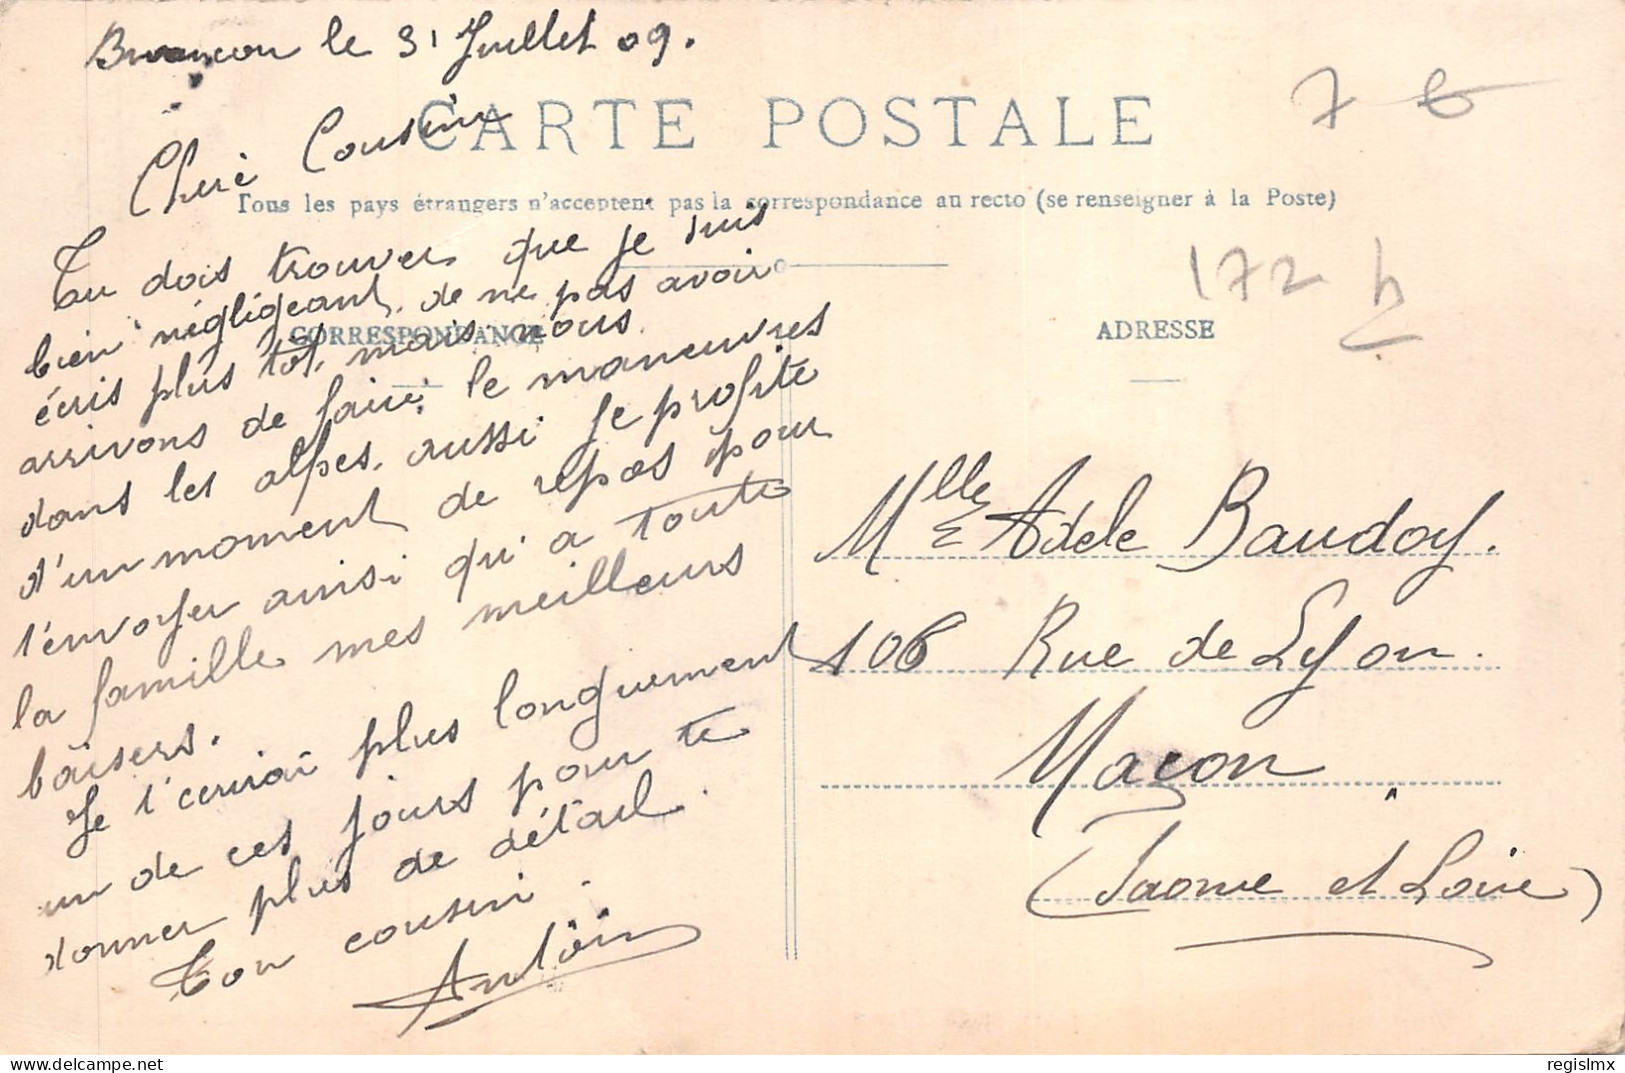 Briançon le 31 Juillet 09.
CARTE POSTALE
Tous les pays étrangers n'acceptent pas la correspondance au recto (se renseigner à la Poste)
CORRESPONDANCE
Chère Cousine
Tu dois trouver que je suis
bien négligeant, de ne pas avoir
écris plus tôt, mais nous
arrivons de faire le maneuvres
dans les alpes, aussi je profite
d'un moment de repos pour
t'envoyer ainsi qu'a toute
la famille mes meilleurs
baisers.
Je t'ecrirai plus longuement
un de ces jours pour te
donner plus de détail.
Ton cousin.
Antoin
ADRESSE
7 6
172
Mlle Adele Baudoy.
106 Rue de Lyon.
Maçon
(Saone et Loire)
regislmx